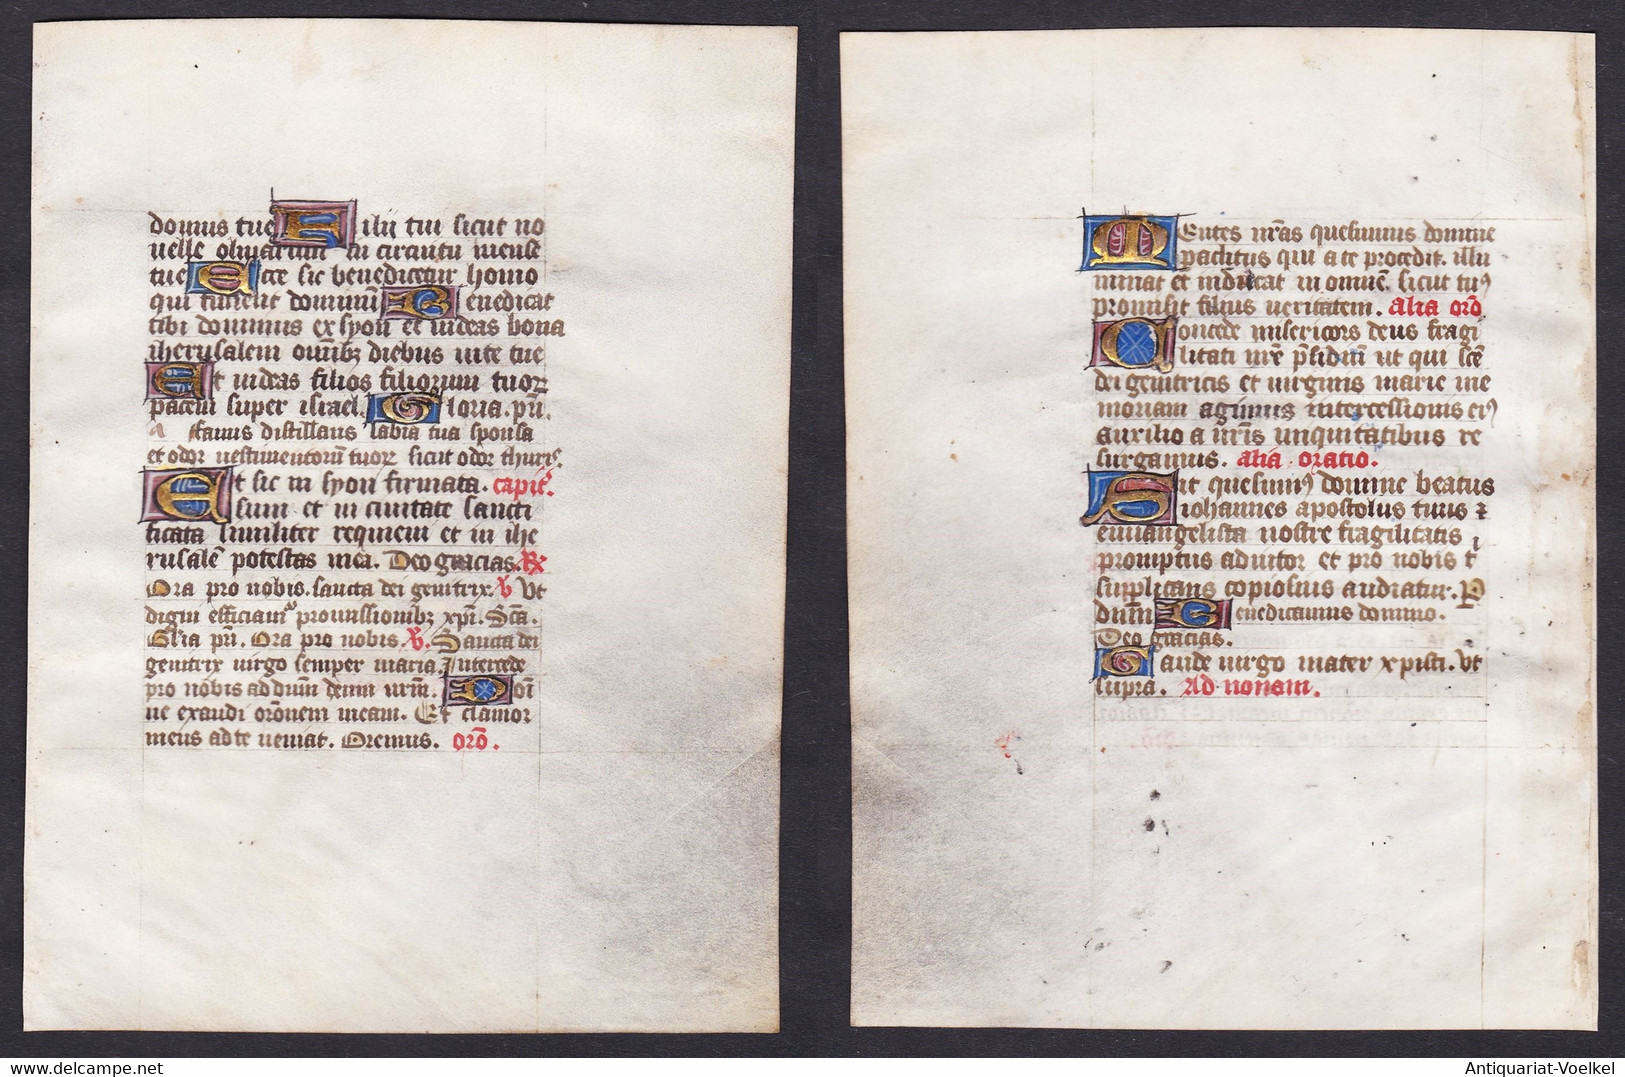 domus tue Filii tui sicut no
uelle oliuarum in circuitu mense
tue Ecce sic benedicetur homo
qui timent dominū Benedicat
tibi dominus ex syon et uideas bona
iherusalem omībꝫ diebus uite tue
Et uideas filios filiorum tuoꝝ
pacem super israel. Gloria. pri.
A fauus distillans labia tua sponsa
et odor uestimentorū tuoꝝ sicut odor thuris.
Et sic in syon firmata. capit.
sum et in ciuitate sancti
ficata similiter requieui et in ihe
rusalē potestas mea. Deo gracias. ℟
Ora pro nobis. sancta dei genitrix. ℣ Vt
digni efficiam̄ promissionibꝫ xp̄i. Sc̄a.
Gl̄ia pri. Ora pro nobis. ℣. Sancta dei
genitrix uirgo semper maria. Intercede
pro nobis ad dūm deum nr̄m. Domi
ne exaudi or̄onem meam. Et clamor
meus ad te ueniat. Oremus. or̄o.
Mentes nr̄as quesumus domine
paclitus qui a te procedit. illu
minat et inducat in omnē. sicut tuꝰ
promisit filius ueritatem. Alia or̄o
Concede misericors deus fragi
litati nr̄e p̄sidiū ut qui sc̄e
dei genitricis et uirginis marie me
moriam agimus intercessionis eiꝰ
auxilio a nr̄is iniquitatibus re
surgamus. alia oratio.
Sit quesumꝰ domine beatus
iohannes apostolus tuus ⁊
euuangelista nostre fragilitatis i
promptus adiutor et pro nobis t
supplicans copiosius audiatur. P
dnm̄ Benedicamus domino.
Deo gracias.
Gaude uirgo mater xpisti. Vt
supra. Ad nonam.
Antiquariat-Voelkel